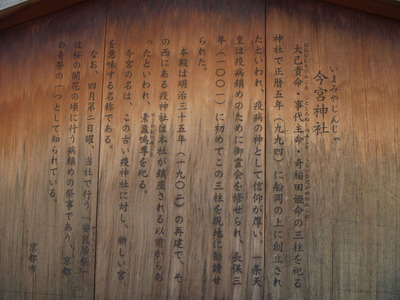 いまみやじんじゃ
今宮神社
大己貴命・事代主命・奇稲田姫命の三柱を祀る
神社で正暦五年(九九四)に船岡の上に創立され
たといわれ、疫病の神として信仰が厚い。一条天
皇は疫病鎮めのために御霊会を修せられ、長保三
年(一〇〇一)に初めてこの三柱を現地に勧請せ
られた。
本殿は明治三十五年(一九〇二)の再建で、そ
の西にある疫神社は本社が鎮座される以前からあ
ったといわれ、素盞嗚尊を祀る。
今宮の名は、この古い疫神社に対し、新しい宮
を意味する名称である。
なお、四月第二日曜、当社で行う「安良居祭」
は桜の開花の頃に行う疫病鎮めの祭事であり、京都
の奇祭の一つとして知られている。
京都市